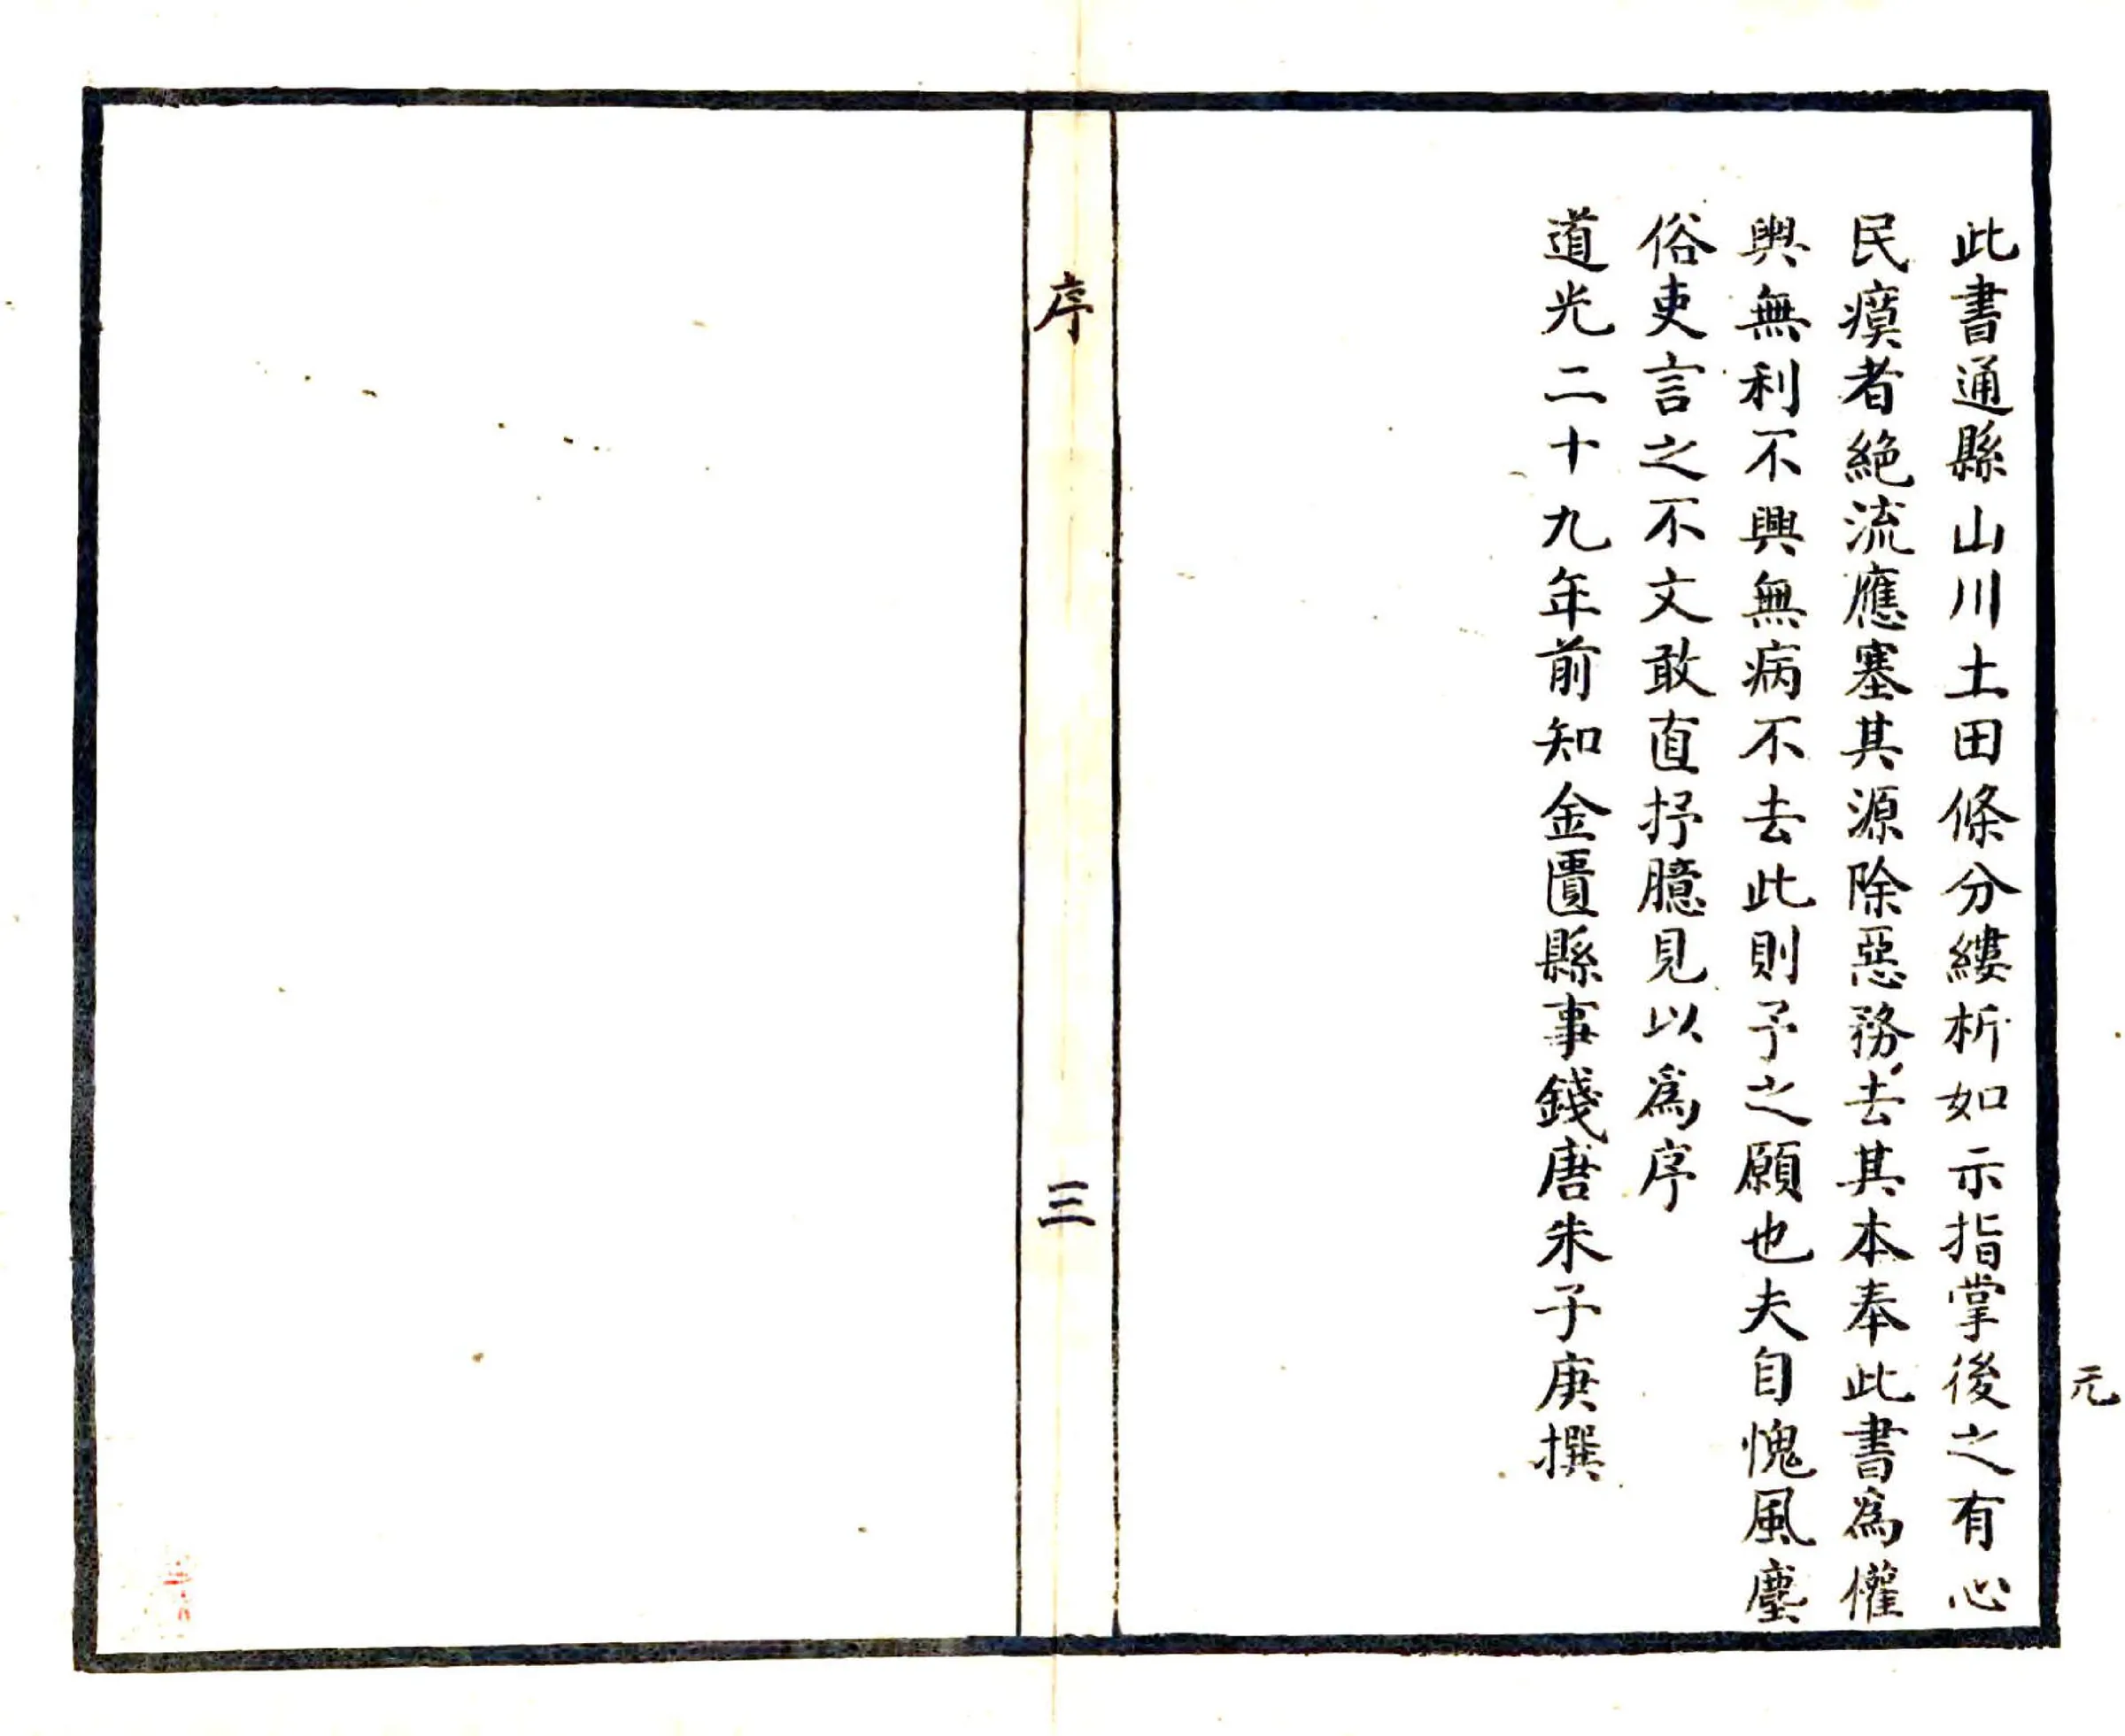 此書通縣山川土田條分縷析如示指掌後之有心
民瘼者絶流應塞其源除惡務去其本奉此書爲懽
輿無利不興無病不去此則予之願也夫自愧風塵
俗吏言之不文敢直抒臆見以爲序
道光二十九年前知金匱縣事錢唐朱子庚撰
序
三
元